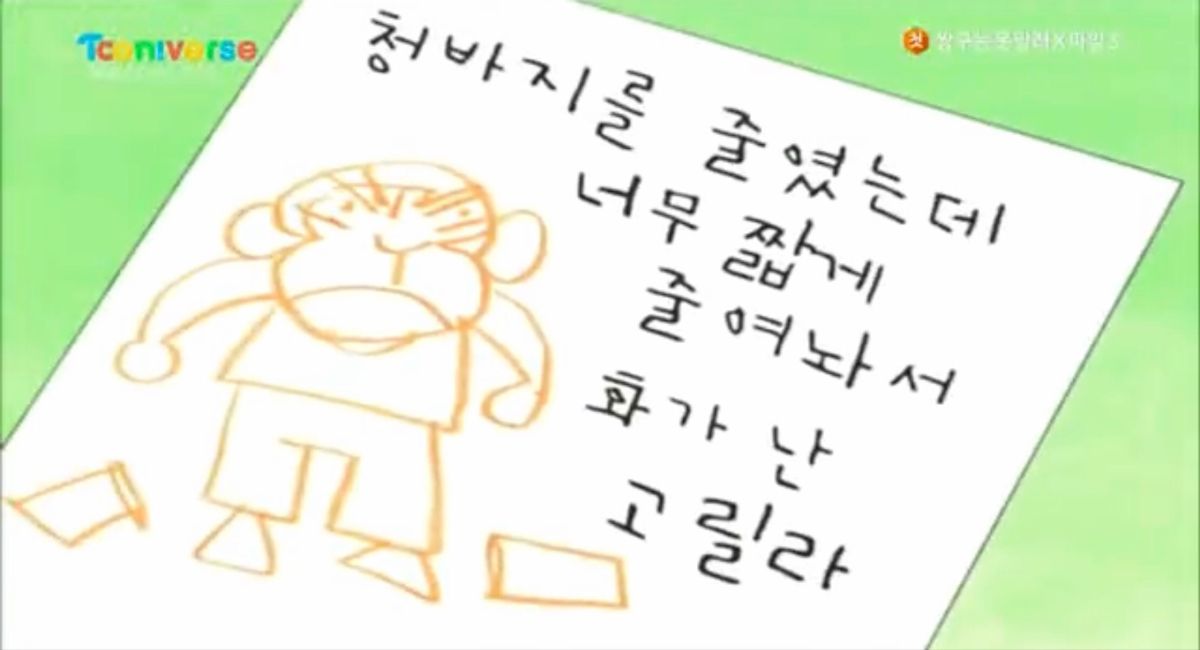 Tooniverse
첫 짱구는 못말려 X 파일 3
청바지를 줄였는데
너무 짧게
줄여놔서
화가 난
고릴라